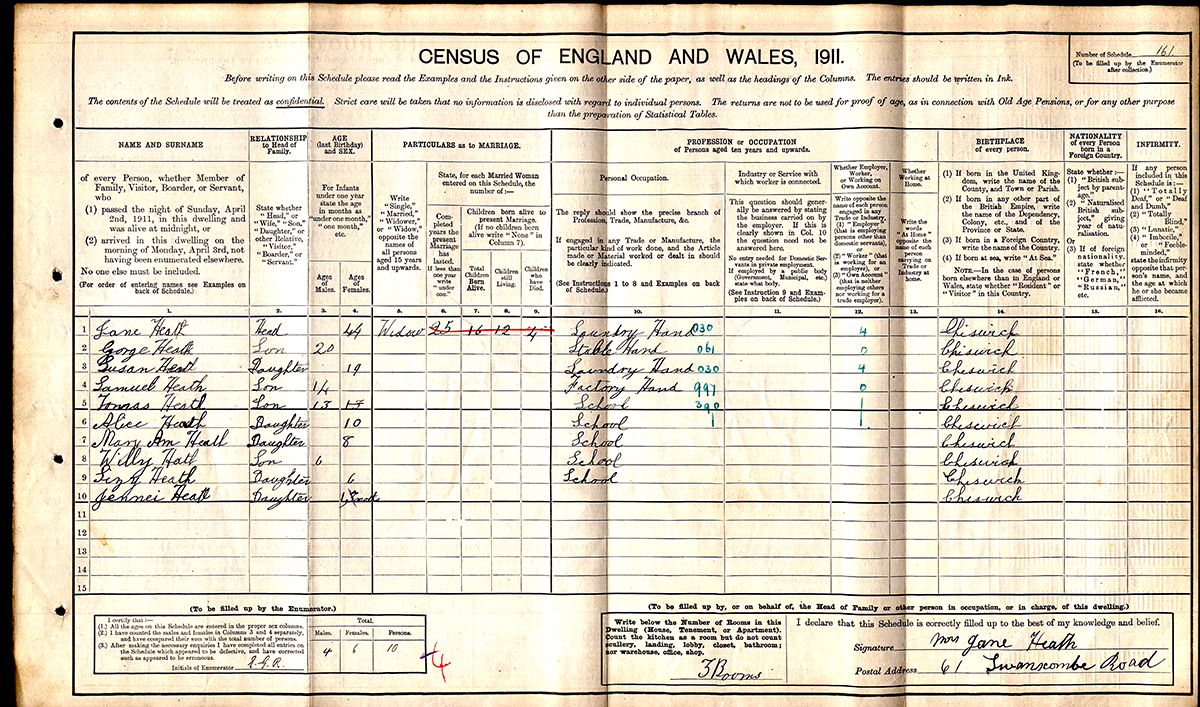 CENSUS OF ENGLAND AND WALES, 1911.
Number of Schedule 161
(To be filled up by the Enumerator
after collection.)
Before writing on this Schedule please read the Examples and the Instructions given on the other side of the paper, as well as the headings of the Columns. The entries should be written in Ink.
The contents of the Schedule will be treated as confidential. Strict care will be taken that no information is disclosed with regard to individual persons. The returns are not to be used for proof of age, as in connection with Old Age Pensions, or for any other purpose
than the preparation of Statistical Tables.
NAME AND SURNAME
of every Person, whether Member of
Family, Visitor, Boarder, or Servant,
who
(1) passed the night of Sunday, April
2nd, 1911, in this dwelling and
was alive at midnight, or
(2) arrived in this dwelling on the
morning of Monday, April 3rd, not
having been enumerated elsewhere.
No one else must be included.
(For order of entering names see Examples on
back of Schedule.)
RELATIONSHIP
to Head of
Family.
State whether
"Head," or
"Wife," "Son,"
"Daughter," or
other Relative,
"Visitor,"
"Boarder," or
"Servant."
AGE
(last Birthday)
and SEX.
For Infants
under one year
state the age
in months as
"under one month,"
"one month,"
etc.
Ages
of
Males.
Ages
of
Females.
PARTICULARS as to MARRIAGE.
Write
"Single,"
"Married,"
"Widower,"
or "Widow,"
opposite the
names of
all persons
aged 15 years
and upwards.
State, for each Married Woman
entered on this Schedule, the
number of:—
Com-
pleted
years the
present
Marriage
has
lasted.
If less than
one year
write
"under
one."
Children born alive to
present Marriage.
(If no children born
alive write "None" in
Column 7).
Total
Children
Born
Alive.
Children
still
Living.
Children
who
have
Died.
PROFESSION or OCCUPATION
of Persons aged ten years and upwards.
Personal Occupation.
The reply should show the precise branch of
Profession, Trade, Manufacture, &c.
If engaged in any Trade or Manufacture, the
particular kind of work done, and the Article
made or Material worked or dealt in should
be clearly indicated.
(See Instructions 1 to 8 and Examples on back
of Schedule.)
Industry or Service with
which worker is connected.
This question should gener-
ally be answered by stating
the business carried on by
the employer. If this is
clearly shown in Col. 10
the question need not be
answered here.
No entry needed for Domestic Ser-
vants in private employment.
If employed by a public body
(Government, Municipal, etc.)
state what body.
(See Instruction 9 and Exam-
ples on back of Schedule.)
Whether Employer,
Worker,
or Working on
Own Account.
Write opposite the
name of each person
engaged in any
Trade or Industry,
(1) "Employer"
(that is employing
persons other than
domestic servants),
or
(2) "Worker" (that
is working for an
employer), or
(3) "Own Account"
(that is neither
employing others
nor working for a
trade employer).
Whether
Working at
Home.
Write the
words
"At Home"
opposite the
name of
each
person
carrying on
Trade or
Industry at
home.
BIRTHPLACE
of every person.
(1) If born in the United King-
dom, write the name of the
County, and Town or Parish.
(2) If born in any other part of
the British Empire, write
the name of the Dependency,
Colony, etc., and of the
Province or State.
(3) If born in a Foreign Country,
write the name of the Country.
(4) If born at sea, write "At Sea."
NOTE.—In the case of persons
born elsewhere than in England or
Wales, state whether "Resident" or
"Visitor" in this Country.
NATIONALITY
of every Person
born in a
Foreign Country.
State whether:—
(1) "British sub-
ject by parent-
age,"
(2) "Naturalised
British sub-
ject," giving
year of natu-
ralisation.
Or
(3) If of foreign
nationality,
state whether
"French,"
"German,"
"Russian,"
etc.
INFIRMITY.
If any person
included in this
Schedule is:—
(1) "Totally
Deaf," or "Deaf
and Dumb,"
(2) "Totally
Blind,"
(3) "Lunatic,"
(4) "Imbecile,"
or "Feeble-
minded,"
state the infirmity
opposite that per-
son's name, and
the age at which
he or she became
afflicted.
1. 2. 3. 4. 5. 6. 7. 8. 9. 10. 11. 12. 13. 14. 15. 16.
1 Jane Heath Head 44 Widow 25 16 12 4 Laundry Hand 030 4 Chiswick
2 Gorge Heath Son 20 Stable Hand 061 0 Chiswick
3 Susan Heat Daughter 19 Laundry Hand 030 4 Cheswick
4 Samuel Heath Son 14 Factory Hand 997 0 Cheswick
5 Tomas Heath Son 13 13 School 390 1 Cheswich
6 Alice Heath Daughter 10 School 1 1 Cheswich
7 Mary Am Heath Daughter 8 School Cheswich
8 Willy Hath Son 6 School Chiswick
9 Lizy Heath Daughter 6 School Cheswich
10 Jennei Heatt Daughter Cheswich
11
12
13
14
15
(To be filled up by the Enumerator.)
I certify that:—
(1.) All the ages on this Schedule are entered in the proper sex columns.
(2.) I have counted the males and females in Columns 3 and 4 separately,
and have compared their sum with the total number of persons.
(3.) After making the necessary enquiries I have completed all entries on
the Schedule which appeared to be defective, and have corrected
such as appeared to be erroneous.
Initials of Enumerator
Total.
Males. Females. Persons.
4 6 10
4
(To be filled up by, or on behalf of, the Head of Family or other person in occupation, or in charge, of this dwelling.)
Write below the Number of Rooms in this
Dwelling (House, Tenement, or Apartment).
Count the kitchen as a room but do not count
scullery, landing, lobby, closet, bathroom;
nor warehouse, office, shop.
3 Rooms
I declare that this Schedule is correctly filled up to the best of my knowledge and belief.
Signature Mrs Jane Heath
Postal Address 61 Swanscombe Road